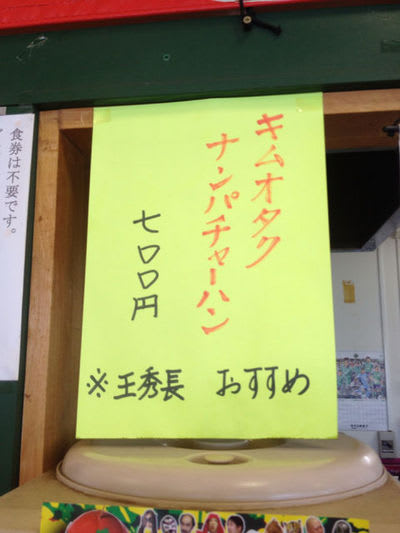 キムオタク
ナンパチャーハン
七〇〇円
※王秀長 おすすめ
食券は不要です。